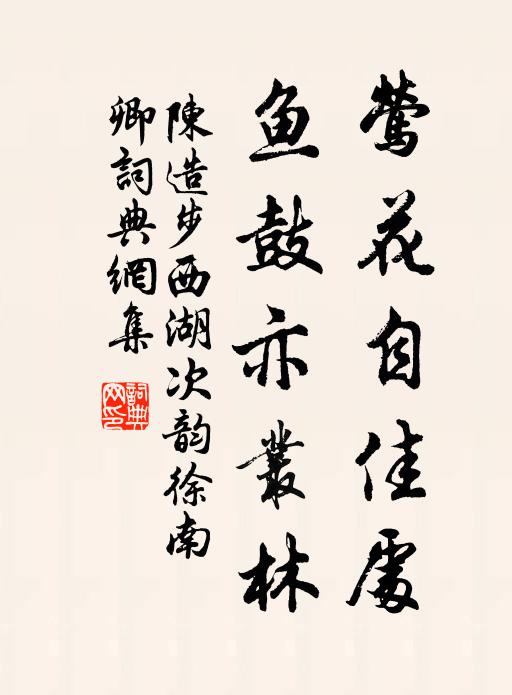 莺花自佳處
鱼鼓亦叢林
陳造步西湖次韵徐南
卿詞典網集
詞典
网印